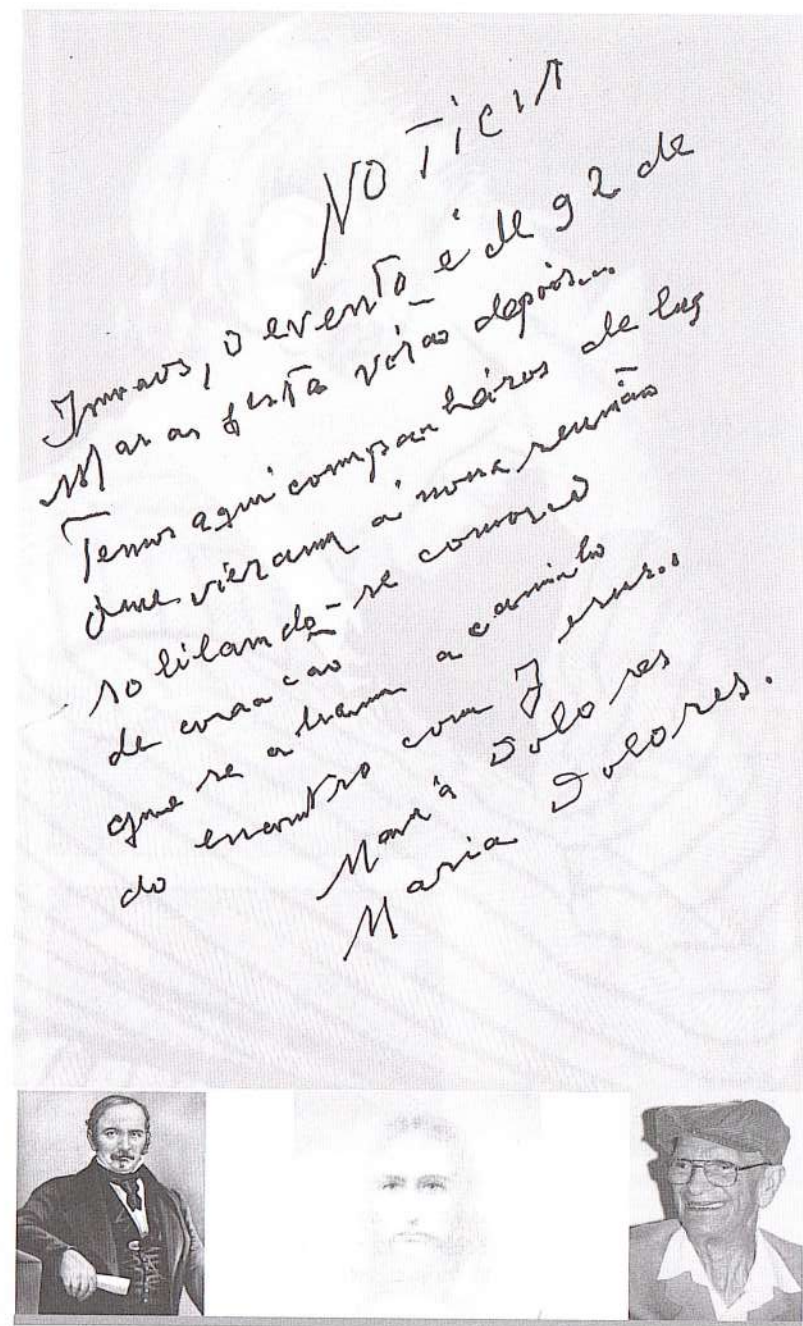 NOTICIA
Irmãos, o evento é de 92 de
Mas as festa virão depois...
Temos aqui companheiros de luz
que vieram à nossa reunião
de coração
que se acham a caminho
do encontro com Jesus..
Maria Dolores
Maria Dolores.